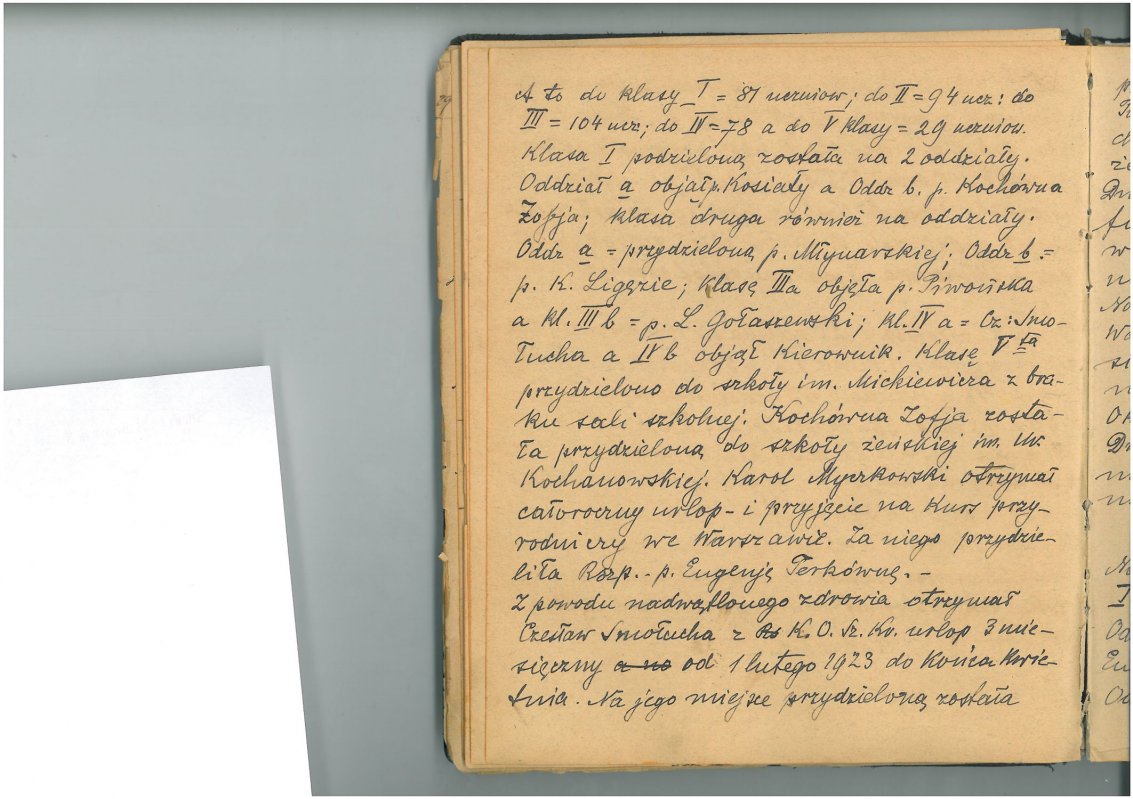 A to do klasy I = 81 uczniow; do II = 94 ucz: do
III = 104 ucz; do IV = 78 a do V klasy = 29 uczniow.
Klasa I podzieloną została na 2 oddziały.
Oddział a objął p. Kosiały a Oddz b. p. Kochówna
Zofja; klasa druga również na oddziały.
Oddz a = przydzieloną p. Młynarskiej; Oddz b. =
p. K. Ligęzie; Klasę IIIa objęła p. Piwońska
a kl. III b = p. L. Gołaszewski; kl. IV a = Cz: Smo-
łucha a IV b objął Kierownik. Klasę V tą
przydzielono do szkoły im. Mickiewicza z bra-
ku sali szkolnej. Kochówna Zofja zosta-
ła przydzieloną do szkoły żeńskiej im.
Kochanowskiej. Karol Myczkowski otrzymał
całoroczny urlop - i przyjęcie na Kurs przy-
rodniczy we Warszawie. Za niego przydzie-
liła Rozp. - p. Eugenję Terkównę. -
Z powodu nadwątlonego zdrowia otrzymał
Czesław Smołucha z K. O. Sz. Kr. urlop 3 mie-
sięczny a na od 1 lutego 1923 do Końca Kwie-
tnia. Na jego miejsce przydzieloną została
29